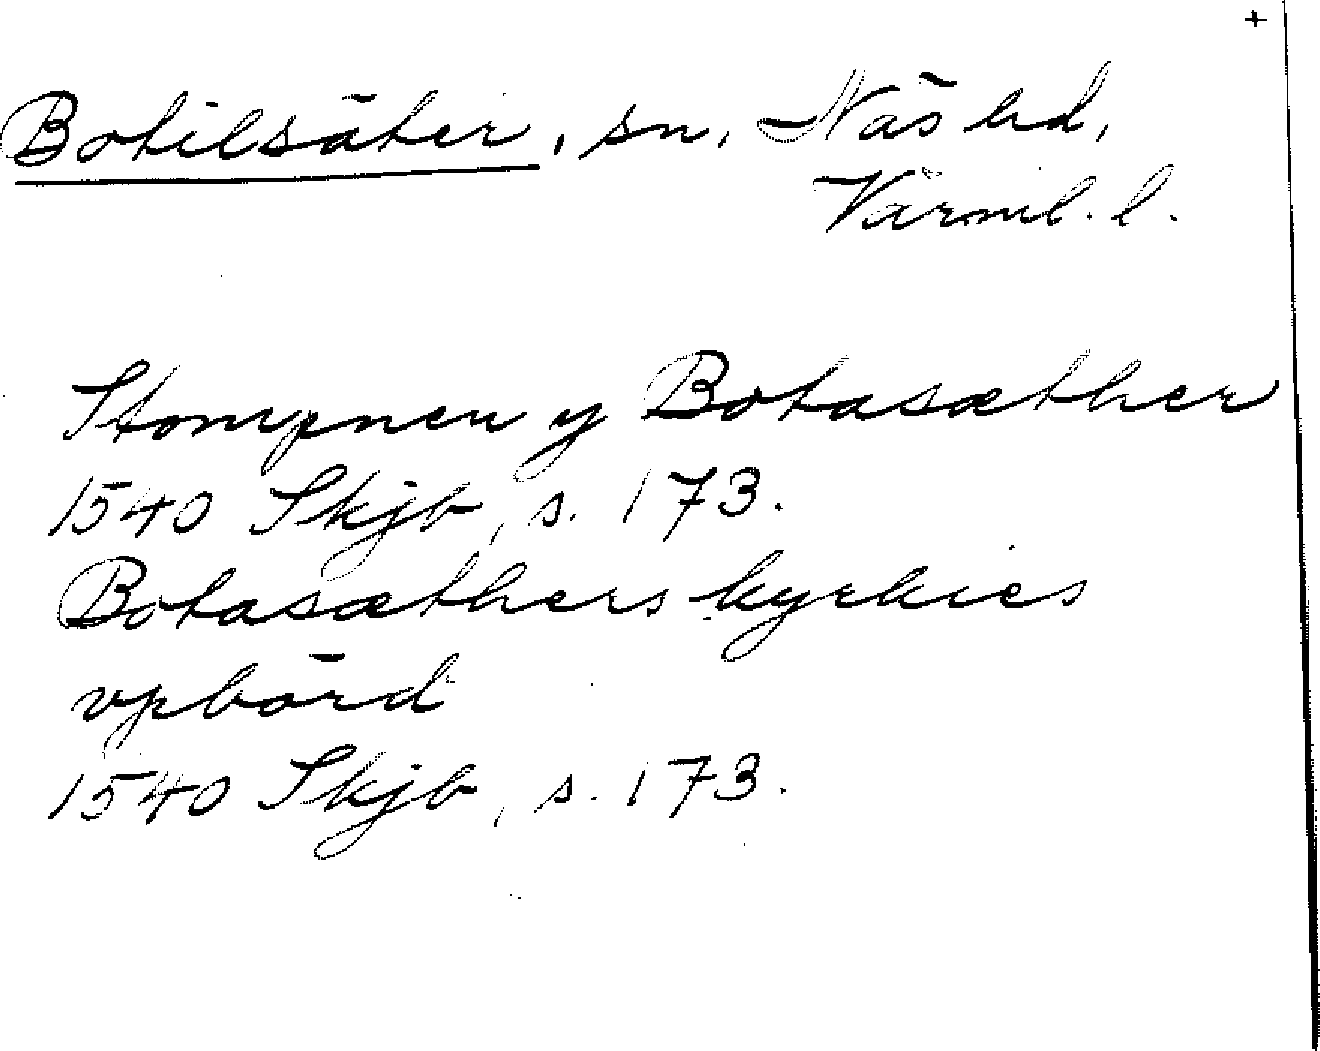 +
Botilsäter, sn, Näs hd,
Värml. l.
Stompnen y Botasæther
1540 Skjb, s. 173.
Botasæthers kyrkies
vpbörd
1540 Skjb, s. 173.